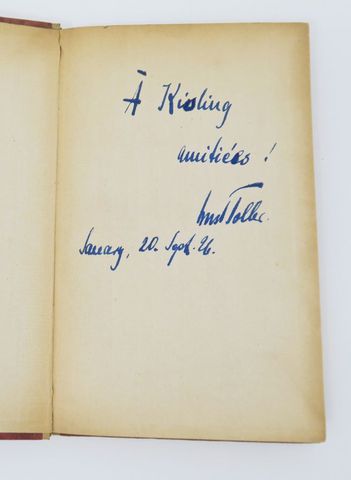 À Kisling
amitiées !
Ernst Toller.
Sanary, 20. Sept. 26.